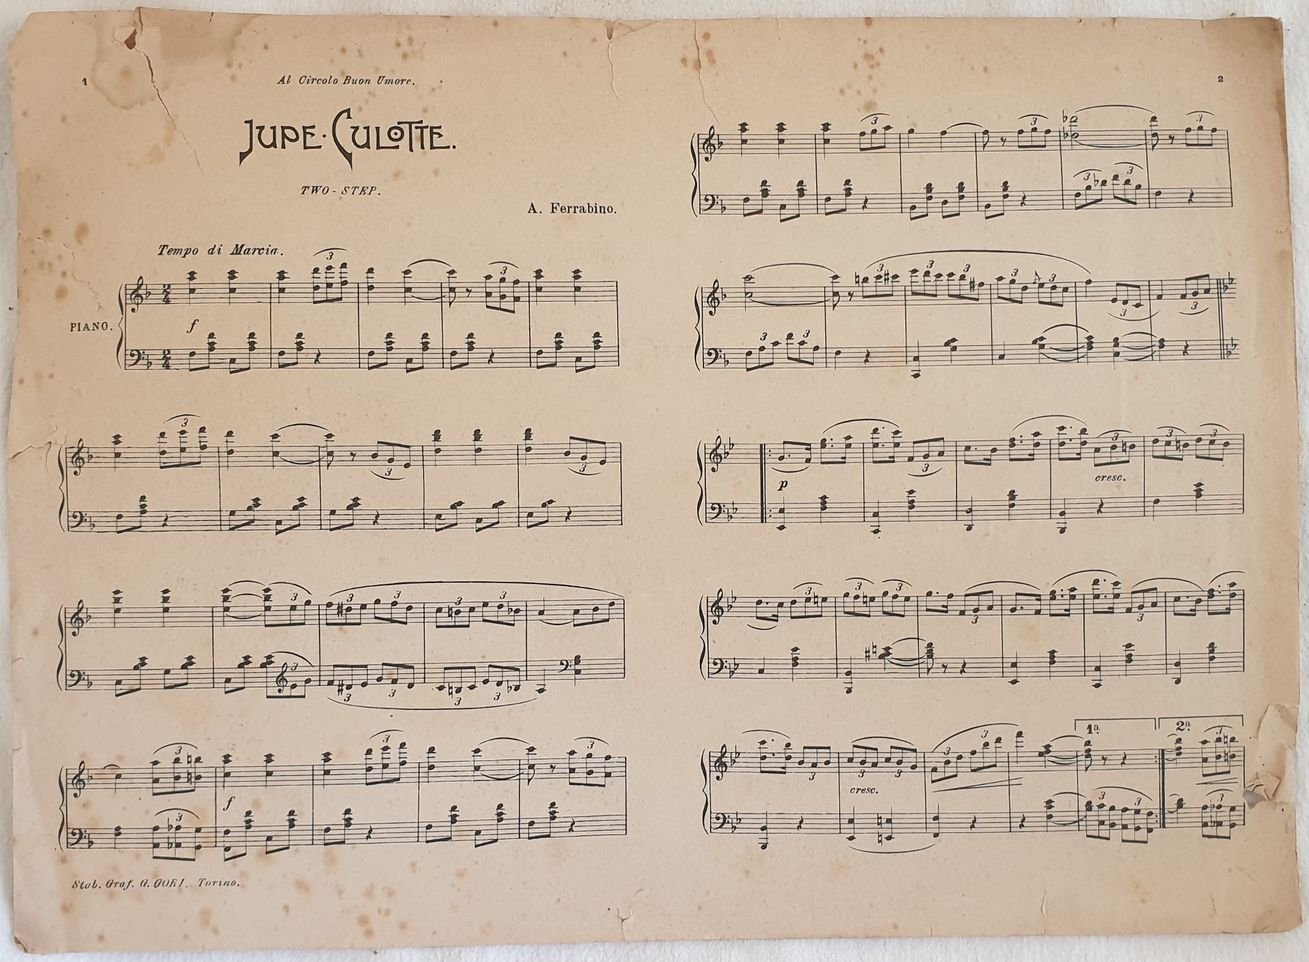 1
Al Circolo Buon Umore.
JUPE-CULOTTE.
TWO-STEP.
A. Ferrabino.
Tempo di Marcia.
PIANO.
f
f
Stab. Graf. G. GORI. Torino.
2
p
cresc.
cresc.
1ª
2ª